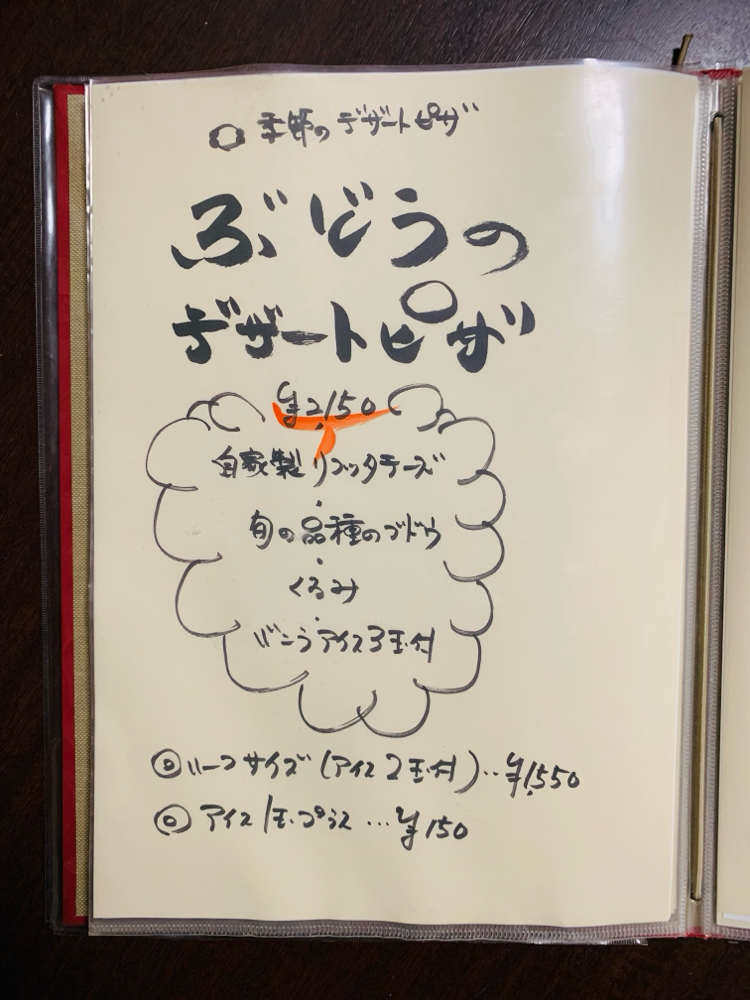 ○ 季節のデザートピザ
ぶどうの
デザートピザ
¥2,150
自家製リコッタチーズ
・
旬の品種のブドウ
・
くるみ
・
バニラアイス3玉付
◎ ハーフサイズ(アイス2玉付)‥¥1,550
◎ アイス1玉プラス…¥150